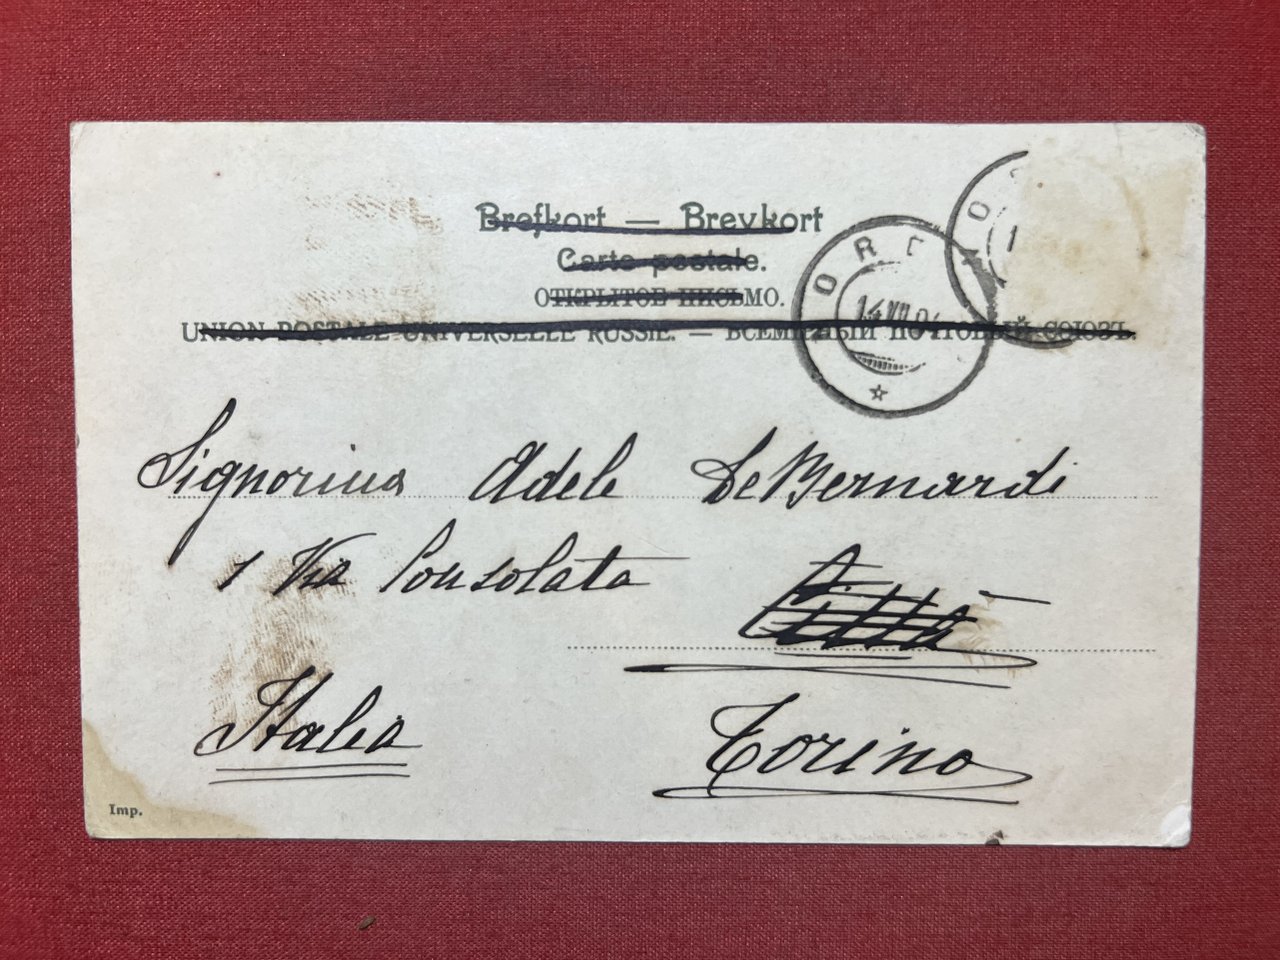 Brefkort — Brevkort
Carte postale.
ОТКРЫТОЕ ПИСЬМО.
UNION POSTALE UNIVERSELLE RUSSIE. — ВСЕМІРНЫЙ ПОЧТОВЫЙ СОЮЗЪ.
14 VII 04
Signorina Adele DeBernardi
1 Via Consolata
Città
Italia
Torino
Imp.